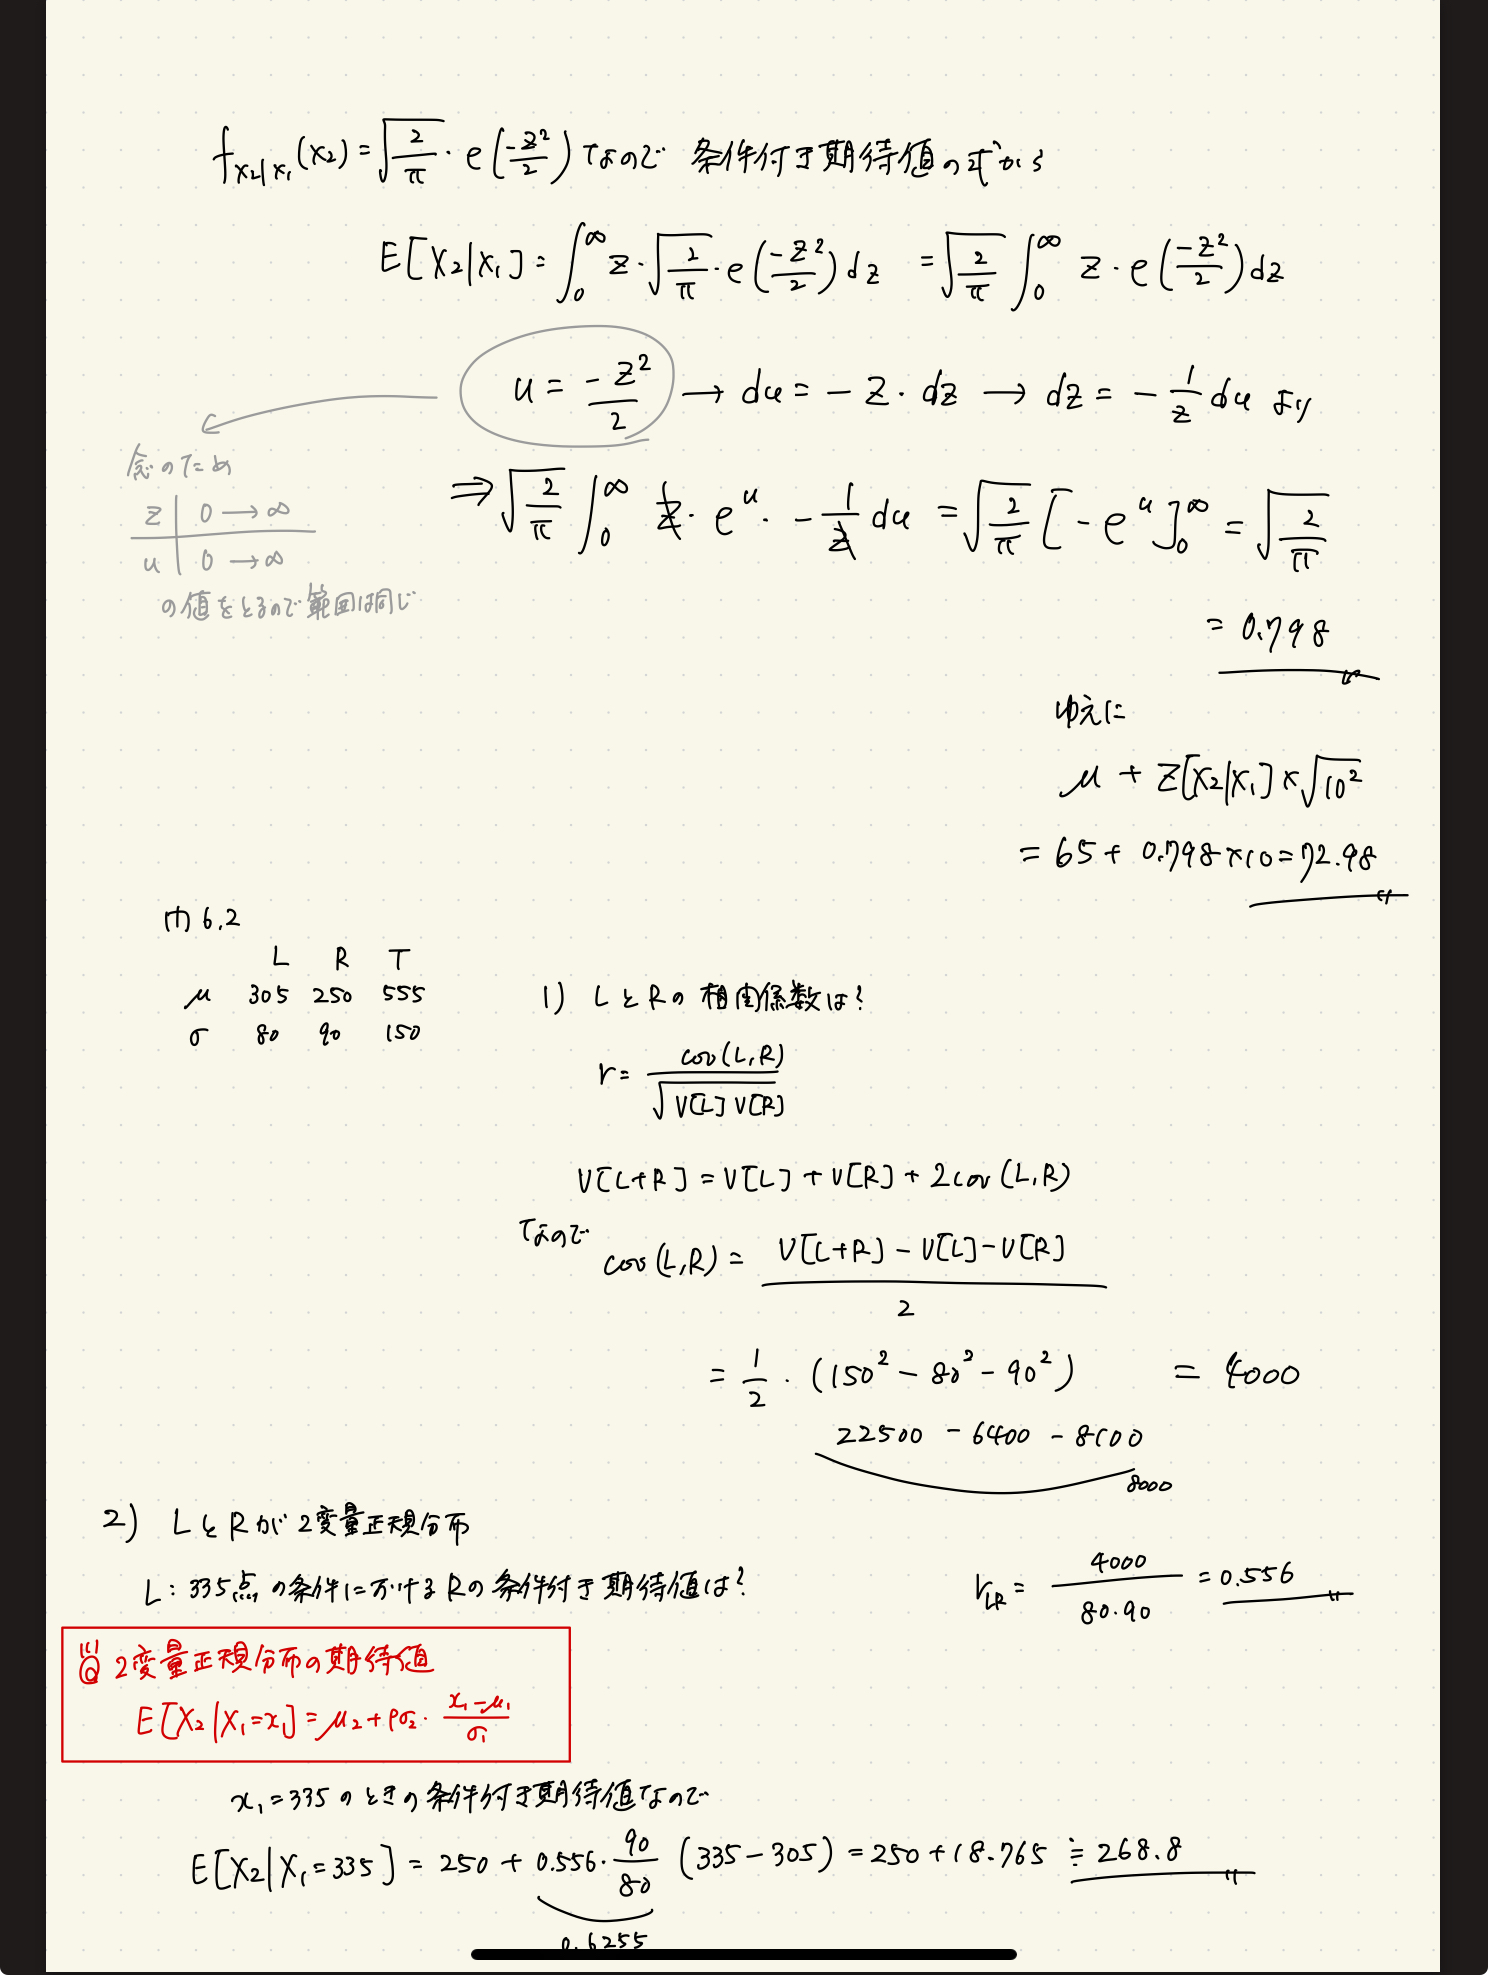 f_{X₂|X₁}(x₂) = √(2/π)・e(-z²/2) なので 条件付き期待値の式から
E[X₂|X₁] = ∫₀^∞ z・√(2/π)・e(-z²/2)dz = √(2/π) ∫₀^∞ z・e(-z²/2)dz
u = -z²/2 → du = -z・dz → dz = -1/z du より
念のため
z | 0 → ∞
u | 0 → ∞
の値をとるので範囲は同じ
⇒ √(2/π) ∫₀^∞ z・e^u・-1/z du = √(2/π) [-e^u]₀^∞ = √(2/π)
= 0.798
ゆえに
μ + Z[X₂|X₁]×√10²
= 65 + 0.798×10 = 72.98
問6.2
L R T
μ 305 250 555
σ 80 90 150
1) LとRの相関係数は?
r = cov(L,R) / √V[L]V[R]
V[L+R] = V[L] + V[R] + 2cov(L,R)
なので
cov(L,R) = (V[L+R] - V[L] - V[R]) / 2
= 1/2・(150² - 80² - 90²) = 4000
22500 - 6400 - 8100
8000
r_{LR} = 4000 / 80・90 = 0.556
2) LとRが2変量正規分布
L: 335点の条件におけるRの条件付き期待値は?
2変量正規分布の期待値
E[X₂|X₁=x₁] = μ₂ + ρσ₂・(x₁-μ₁)/σ₁
x₁=335のときの条件付き期待値なので
E[X₂|X₁=335] = 250 + 0.556・90/80 (335-305) = 250 + 18.765 ≒ 268.8
0.6255